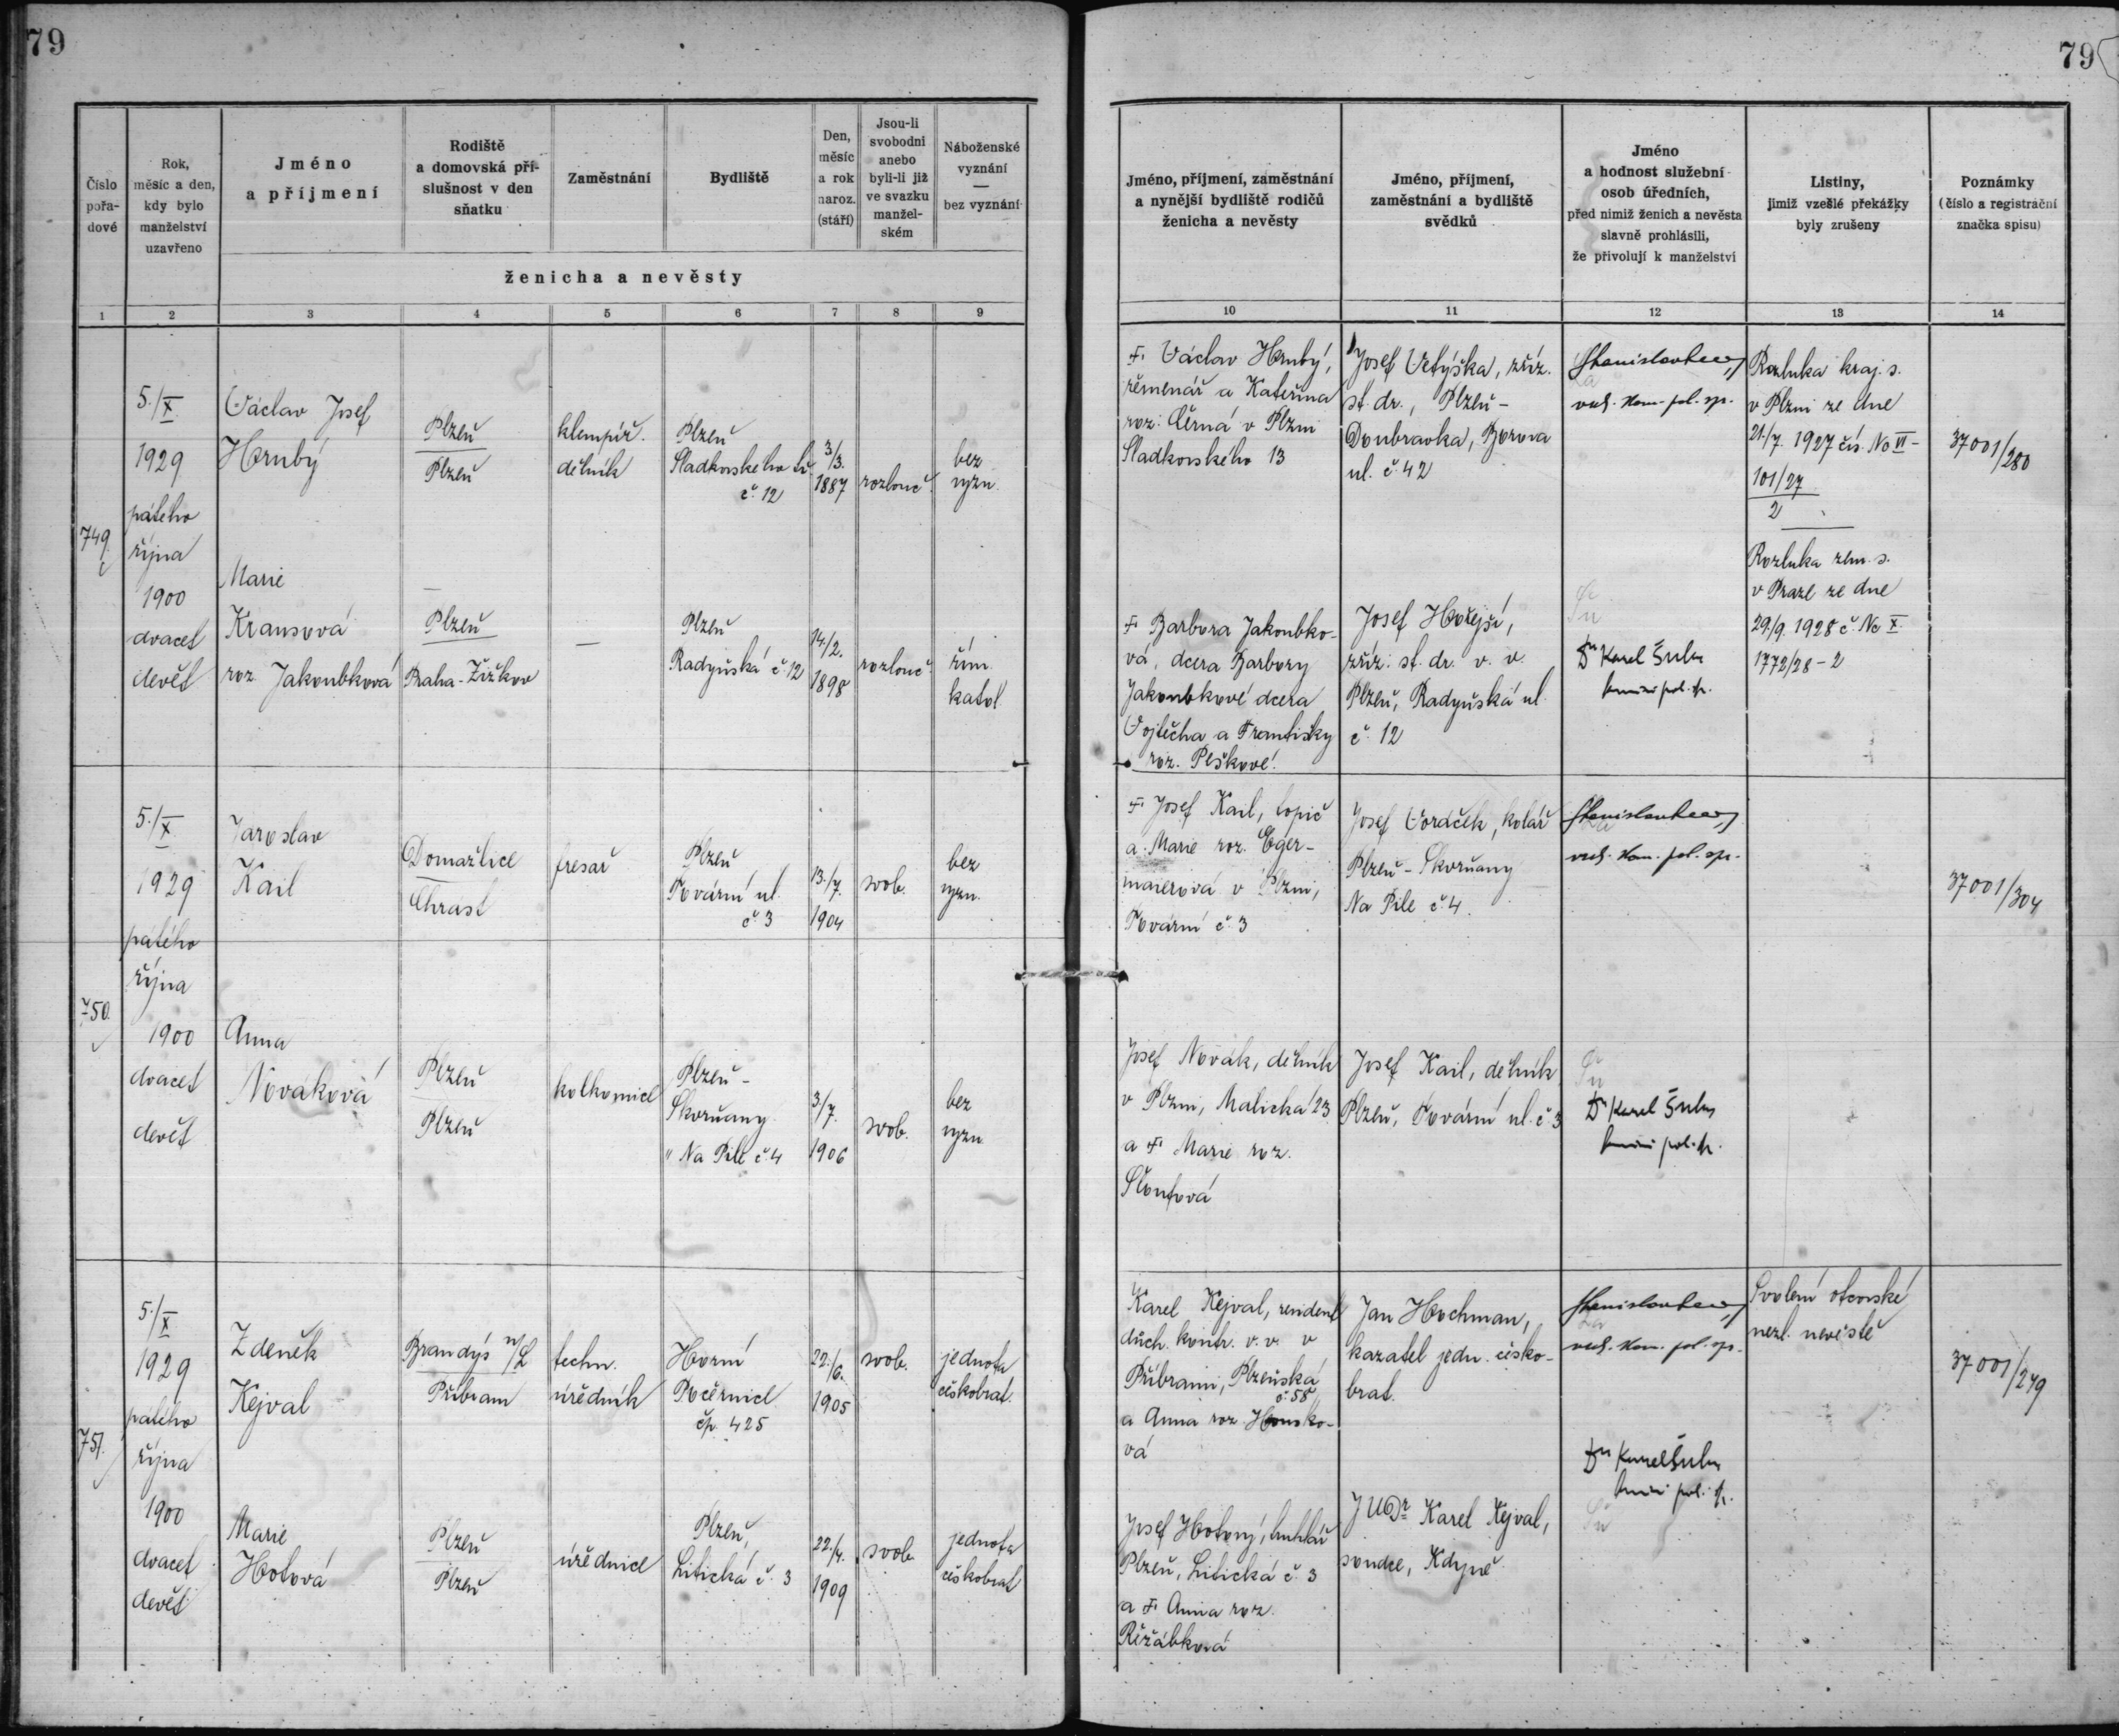 79
79
Číslo
pořa-
dové
Rok,
měsíc a den,
kdy bylo
manželství
uzavřeno
Jméno
a příjmení
Rodiště
a domovská pří-
slušnost v den
sňatku
Zaměstnání
Bydliště
Den,
měsíc
a rok
naroz.
(stáří)
Jsou-li
svobodni
anebo
byli-li již
ve svazku
manžel-
ském
Náboženské
vyznání
—
bez vyznání
ženicha a nevěsty
1 2 3 4 5 6 7 8 9
Jméno, příjmení, zaměstnání
a nynější bydliště rodičů
ženicha a nevěsty
Jméno, příjmení,
zaměstnání a bydliště
svědků
Jméno
a hodnost služební
osob úředních,
před nimiž ženich a nevěsta
slavně prohlásili,
že přivolují k manželství
Listiny,
jimiž vzešlé překážky
byly zrušeny
Poznámky
(číslo a registrační
značka spisu)
10 11 12 13 14
749.
5./X.
1929
pátého
října
1900
dvacet
devět
Václav Josef
Hrubý
Plzeň
Plzeň
klempíř.
dělník
Plzeň
Sladkovského tř.
č. 12
3/3.
1887
rozlouč.
bez
vyzn.
Marie
Krausová
roz. Jakoubková
Plzeň
Praha-Žižkov
—
Plzeň
Radyňská č 12
14./2.
1898
rozlouč.
řím.
katol.
† Václav Hrubý,
řemenář a Kateřina
roz. Černá v Plzni
Sladkovského 13
Josef Vetýška, zříz.
st. dr., Plzeň-
Doubravka, Borova
ul. č. 42
vrch. kom. pol. spr.
Rozluka kraj. s.
v Plzni ze dne
21./7. 1927 čís. No VI-
101/27
2
37001/280
† Barbora Jakoubko-
vá, dcera Barbory
Jakoubkové dcera
Vojtěcha a Františky
roz. Peškové.
Josef Hořejší,
zříz. st. dr. v. v.
Plzeň, Radyňská ul.
č. 12
Dr Karel Šula
Rozluka zem. s.
v Praze ze dne
29./9. 1928 č. Nc X
1772/28-2
750.
5./X
1929
pátého
října
1900
dvacet
devět
Jaroslav
Kail
Domažlice
Chrast
fresař
Plzeň
Tovární ul.
č 3
13./7.
1904
svob.
bez
vyzn.
Anna
Nováková
Plzeň
Plzeň
kolkovnice
Plzeň-
Skvrňany
"Na Pile č. 4
3./7.
1906
svob.
bez
vyzn.
† Josef Kail, topič
a Marie roz. Eger-
maierová v Plzni,
Tovární č. 3
Josef Voráček, kolář
Plzeň-Skvrňany
Na Pile č 4.
vrch. kom. pol. spr.
37001/304
Josef Novák, dělník
v Plzni, Malická 23
a † Marie roz.
Šloufová
Josef Kail, dělník
Plzeň, Tovární ul. č. 3
Dr Karel Šula
751.
5./X
1929
pátého
října
1900
dvacet
devět
Zdeněk
Kejval
Brandýs n/L
Příbram
techn.
úředník
Horní
Počernice
čp. 425
22./6.
1905
svob.
jednota
českobrat.
Marie
Hotová
Plzeň
Plzeň
úřednice
Plzeň,
Litická č. 3
22./4.
1909
svob.
jednota
českobrat
Karel Kejval,
důch. kontr. v. v. v
Příbrami, Plzeňská
č. 58,
a Anna roz. Honsko-
vá
Jan Hochman,
kazatel jedn. česko-
brat.
vrch. kom. pol. spr.
Svolení otcovské
nezl. nevěstě
37001/279
Josef Hotový, truhlář
Plzeň, Litická č. 3
a † Anna roz.
Řeřábková
JUDr Karel Kejval,
soudce, Kdyně
Dr Karel Šula